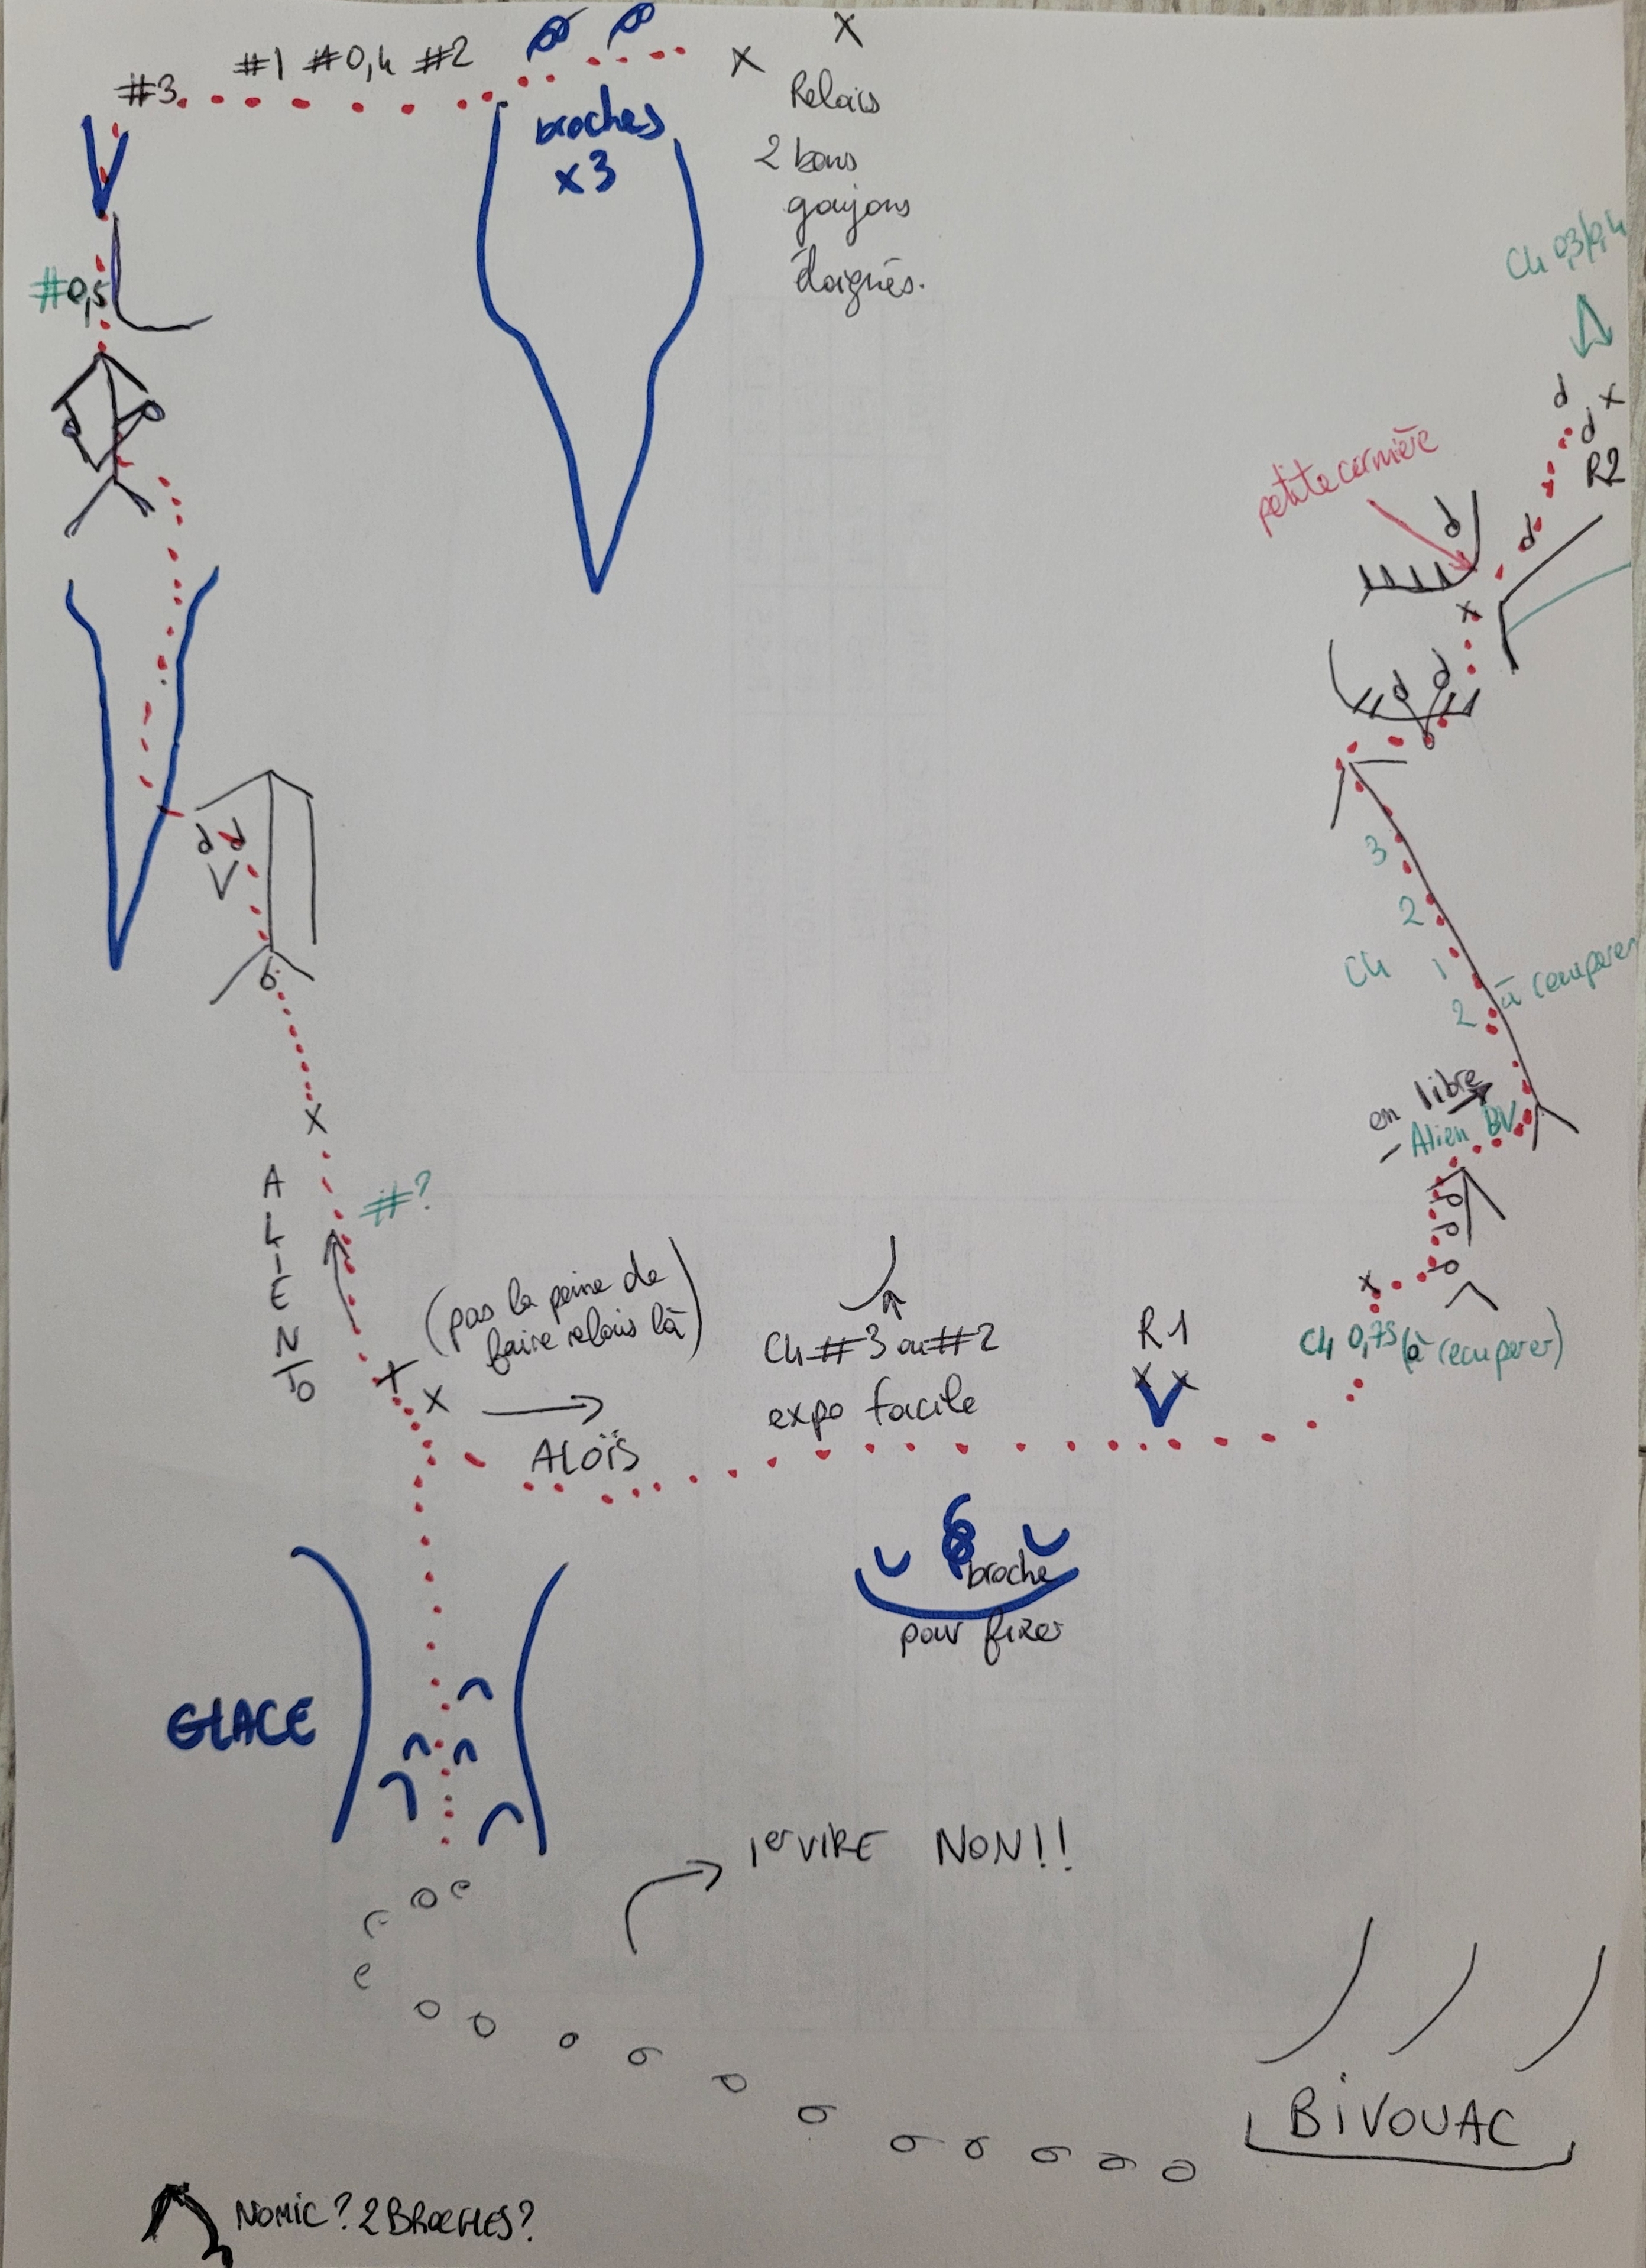 #3 #1 #0,4 #2
broches
x3
Relais
2 bons
goujons
éloignés.
#0,5
Ch 0,3/0,4
R2
petite cornière
3
2
Ch 1
2 à récuperer
en libre
Alien BV
Ch 0,75 (à récuperer)
ALIENTO
#?
(pas la peine de
faire relais là)
ALOÏS
Ch #3 ou #2
expo facile
R1
broche
pour fixer
GLACE
1er VIRE NON!!
BIVOUAC
NOMIC? 2 BROCHES?